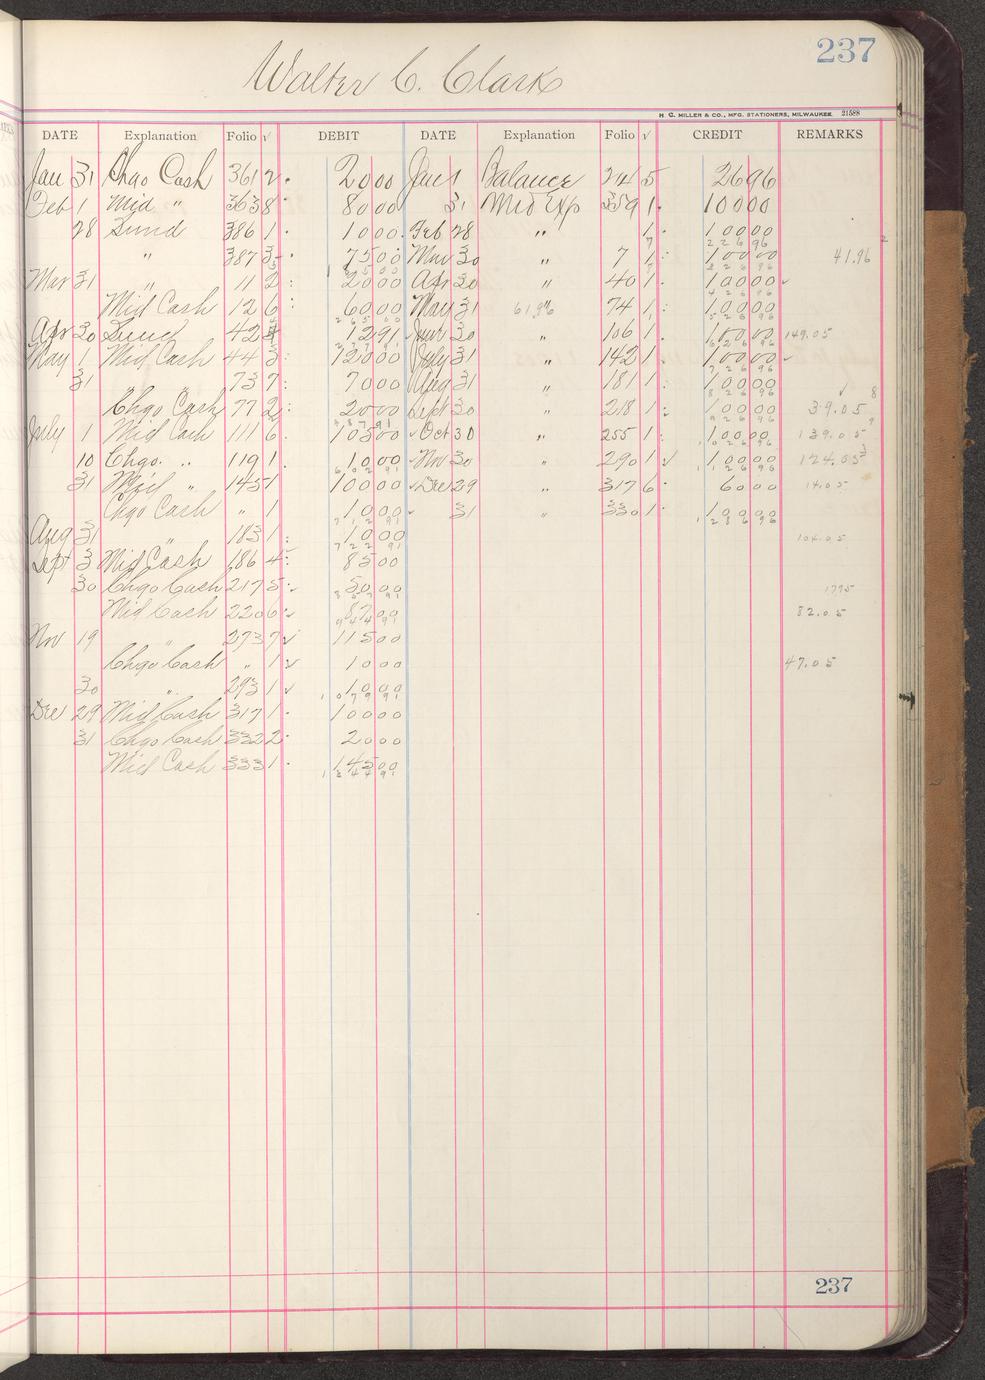 237
Walter C. Clark
H. C. MILLER & CO., MFG. STATIONERS, MILWAUKEE. 21588
DATE Explanation Folio √ DEBIT DATE Explanation Folio √ CREDIT REMARKS
Jan 31 Chgo Cash 361 2 20 00 Jan 1 Balance 241 5 26 96
Feb 1 Mid " 363 8 80 00 31 Mid Exp 359 1 100 00
28 Sund 386 1 10 00 Feb 28 " 1 100 00
2 2 6 96
" 387 3 75 00 Mar 30 " 7 1 100 00 41.96
1 3 2 6 96
Mar 31 " 11 2 20 00 Apr 30 " 40 1 100 00
4 2 6 96
Mid Cash 12 6 60 00 May 31 61.96 " 74 1 100 00
2 6 5 00 5 2 6 96
Apr 30 Sund 42 4 2 91 June 30 " 106 1 100 00 149.05
6 2 6 96
May 1 Mid Cash 44 3 120 00 July 31 " 142 1 100 00
7 2 6 96
31 " " 73 7 70 00 Aug 31 " 181 1 100 00
8 2 6 96
Chgo Cash 77 2 20 00 Sept 30 " 218 1 100 00 39.05
9 2 6 96
July 1 Mid Cash 111 6 103 00 Oct 30 " 255 1 100 00 139.05
1 0 2 6 96
10 Chgo. " 119 1 10 00 Nov 30 " 290 1 100 00 124.05
1 1 2 6 96
31 Mid " 145 1 100 00 Dec 29 " 317 6 60 00 14.05
Chgo Cash " 1 10 00 31 " 330 1 100 00
7 1 2 91 1 2 8 6 96
Aug 31 " 183 1 10 00 104.05
7 2 2 91
Sept 3 Mid Cash 186 4 85 00
30 Chgo Cash 217 5 50 00
Mid Cash 220 6 87 00 82.05
9 4 4 91
Nov 19 " 273 7 115 00
Chgo Cash " 1 10 00 47.05
30 " 293 1 10 00
1 0 7 9 91
Dec 29 Mid Cash 317 1 100 00
31 Chgo Cash 332 2 20 00
Mid Cash 333 1 145 00
1 3 4 4 91
237